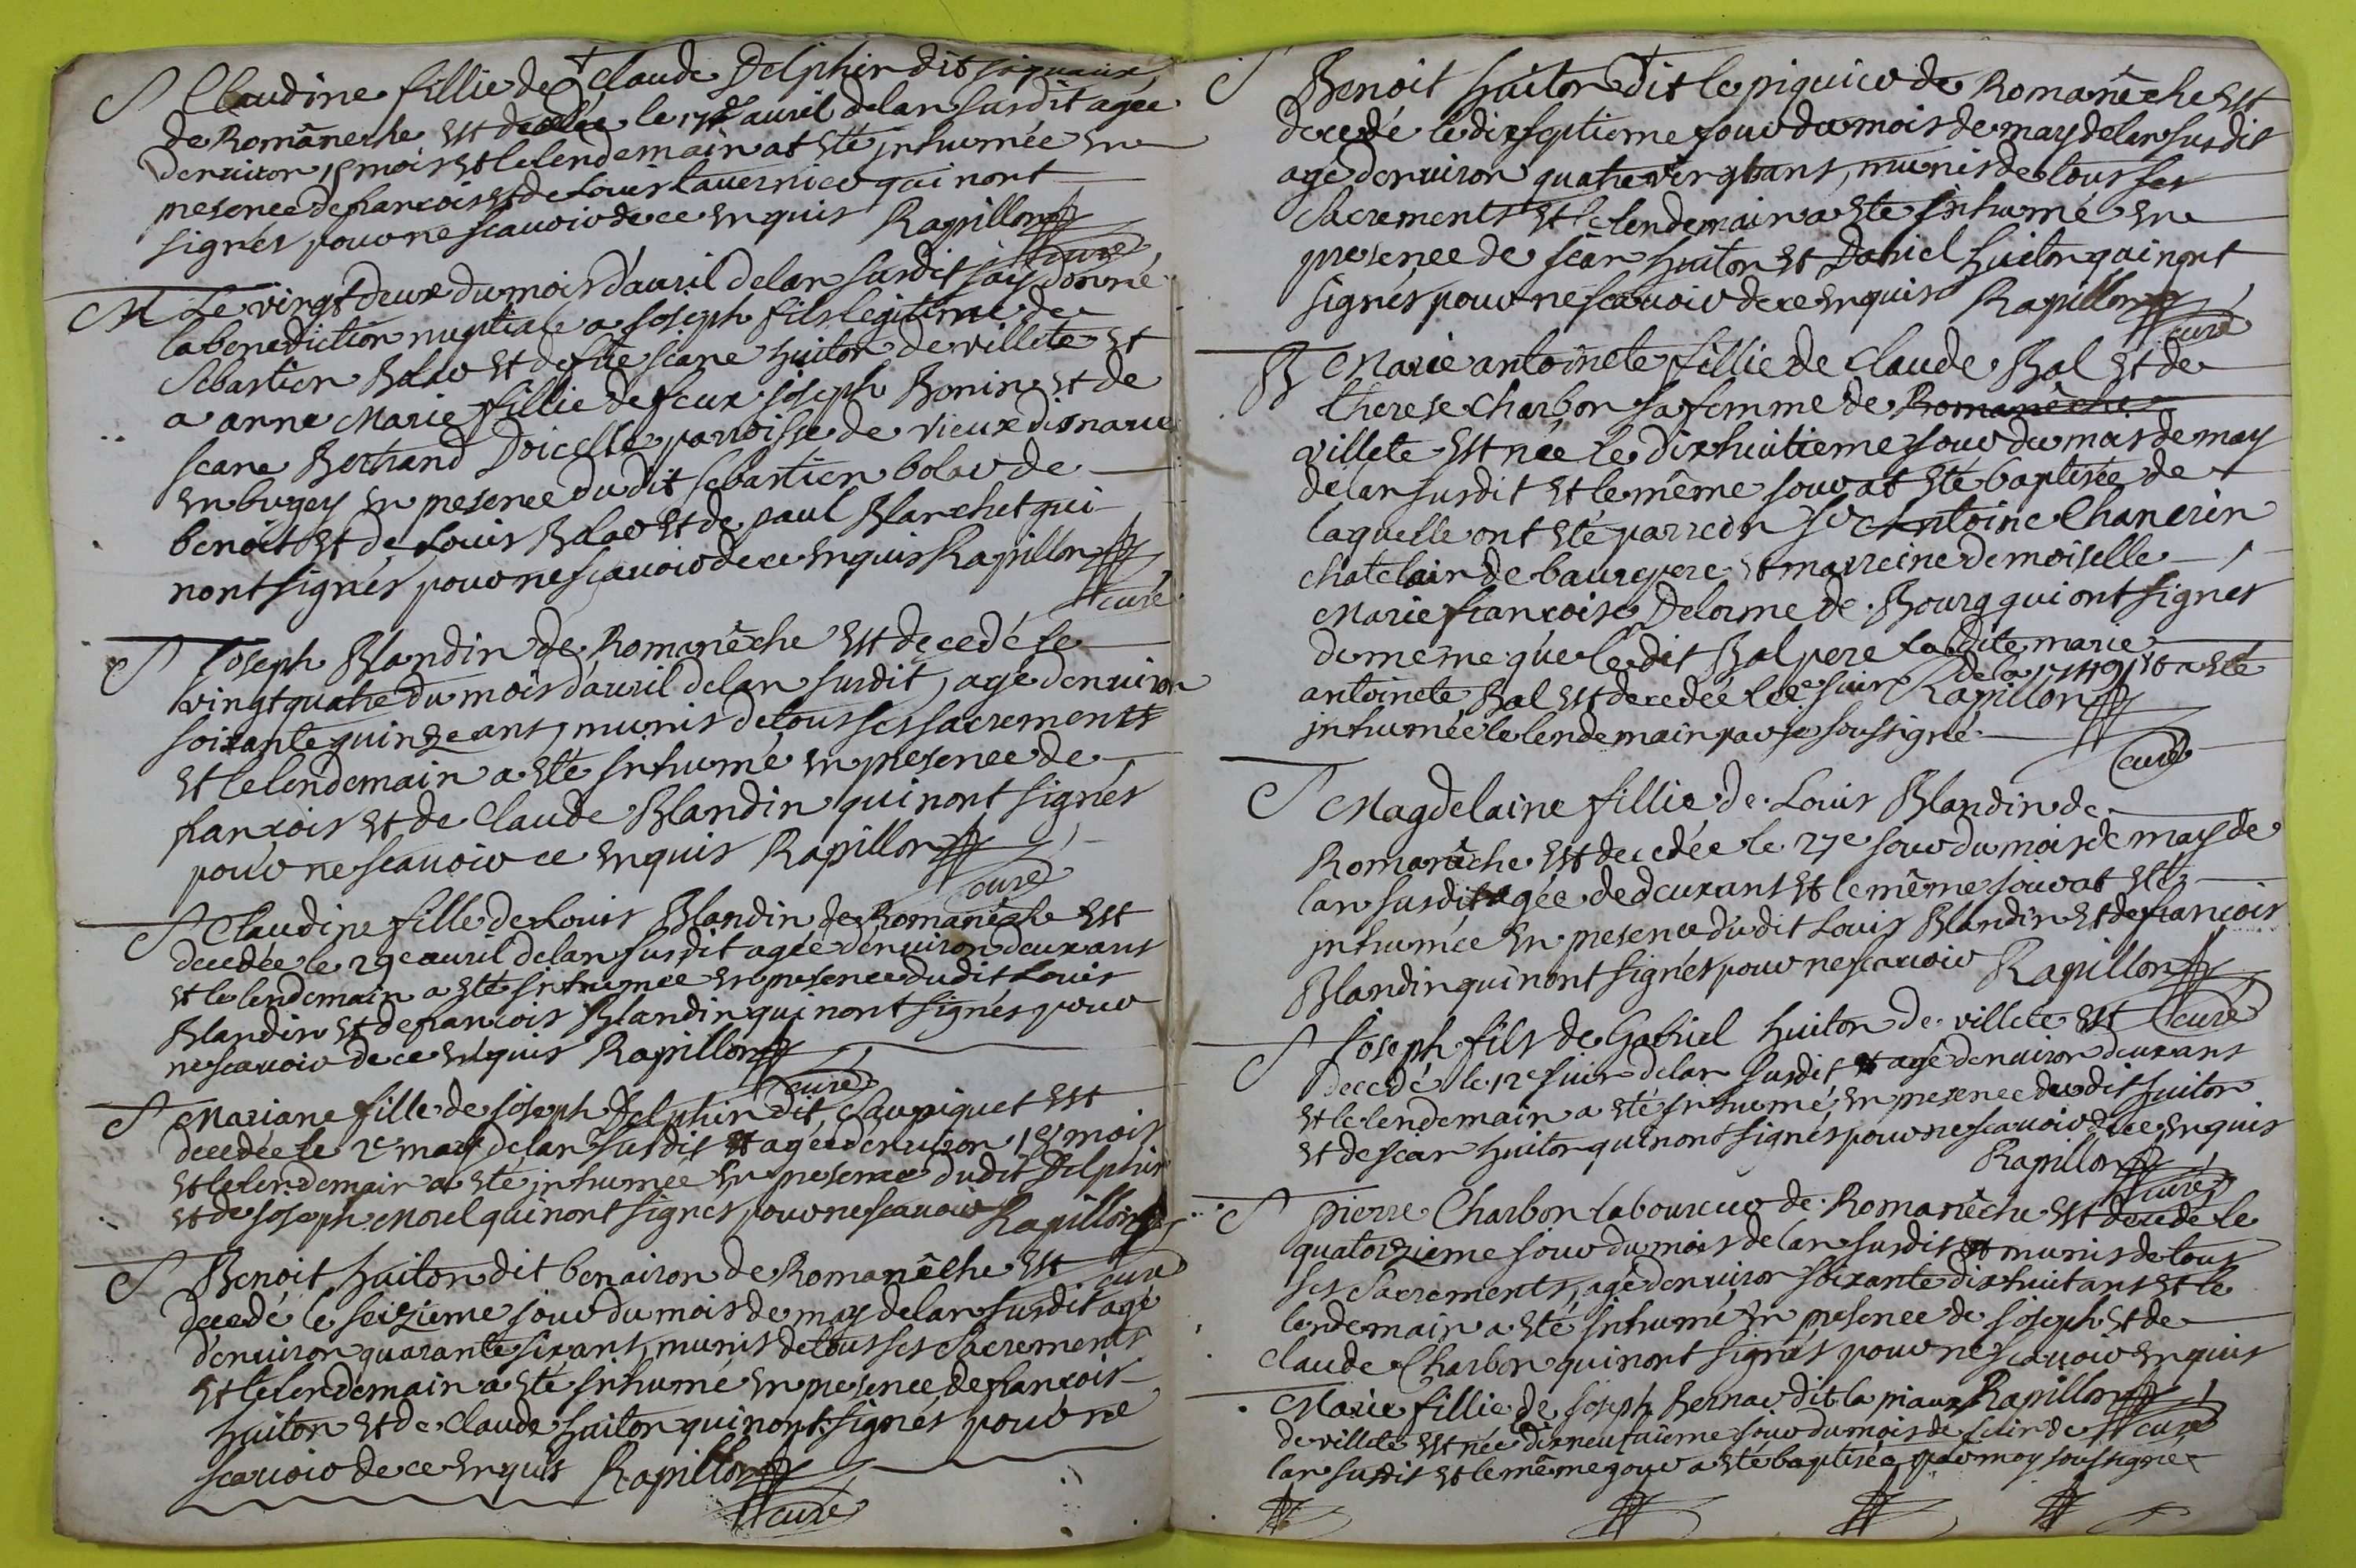 S Claudine fillie de Claude Delphin dit
de Romanêche est decedée le 17e auril delan susdit agée
denuiron 18 mois et lelendemain at eté inhumée en
presence de francois et de Louis tauernier qui nont
signés pour ne scauoir de ce enquis Rapillon
curé
M Le vingt deux du mois dauril delan susdit jay donné
la benediction nuptiale a joseph fils legitime de
Sebastien Bolar et de feüe jeane huiton de villete et
a anne Marie fillie de feux joseph Bonin et de
jeane Bertrand Doicelle parroisse de vieux disnaue
en bugey en presence du dit sebastien bolar de
benoit et de Louis Bolar et de paul Blanchet qui
nont signés pour ne scauoir de ce enquis Rapillon
curé
S Joseph Blandin de Romanêche est decedé le
vingt quatre du mois dauril delan susdit, agé denuiron
soixante quinze ans, munis de tous ses sacrements
et lelendemain a eté inhumé en presence de
francois et de Claude Blandin qui nont signés
pour ne scauoir ce enquis Rapillon
curé
S Claudine fille de Louis Blandin de Romanêche est
decedée le 29e auril delan susdit agée denuiron deux ans
et le lendemain a eté inhumée en presence du dit Louis
Blandin et de francois Blandin qui nont signés pour
ne scauoir de ce enquis Rapillon
curé
S Mariane fille de joseph Delphin dit Claupiquet est
decedée le 2e may delan susdit et agée denuiron 18 mois
et lelendemain a eté inhumée en presence du dit Delphin
et de joseph Morel qui nont signés pour ne scauoir Rapillon
curé
S Benoit huiton dit benairon de Romanêche est
decedé le seizieme jour du mois de may delan susdit agé
denuiron quarante six ans, munis de tous ses Sacrements
et lelendemain a eté inhumé en presence de francois
huiton et de Claude huiton qui nont signés pour ne
scauoir de ce enquis Rapillon
curé
S Benoit huiton dit le piquier de Romanêche est
decedé le dix septieme jour du mois de may delan susdit
agé denuiron quatre vingt ans, munis de tous ses
Sacrements et lelendemain a eté inhumé en
presence de jean huiton et Daniel huiton qui nont
signés pour ne scauoir de ce enquis Rapillon
curé
B Marie antoinete fillie de Claude Bal et de
therese Charbon sa femme de Romanêche
villete est née le dixhuitieme jour du mois de may
delan susdit et le même jour at eté baptisée de
laquelle ont eté parrein Sr Antoine Chanerin
chatelain de beaurepere et marreine demoiselle
Marie francoise Delorme de Bourg qui ont signés
de même que le dit Bal pere la dite marie
antoinete Bal est decedée le 2e juin de la 1749 et a eté
inhumée le lendemain par je soussigné Rapillon
curé
S Magdelaine fillie de Louis Blandin de
Romanêche est decedée le 27e jour du mois de may de
lan susdit agée de deux ans et le même jour at eté
inhumée en presence du dit Louis Blandin et de francois
Blandin qui nont signés pour ne scauoir Rapillon
curé
S Joseph fils de Gabriel huiton de villete est
decedé le 12e juin delan susdit et agé denuiron deux ans
et lelendemain a eté inhumé en presence du dit huiton
et de jean huiton qui nont signés pour ne scauoir de ce enquis
Rapillon
curé
S Pierre Charbon laboureur de Romanêche est decedé le
quatorzieme jour du mois delan susdit et munis de tous
ses Sacrements, agé denuiron soixante dixhuit ans et le
lendemain a eté inhumé en presence de joseph et de
Claude Charbon qui nont signés pour ne scauoir enquis
Rapillon
curé
Marie fillie de joseph Bernar dit la piaux
de villete est née le dixneufuieme jour du mois de juin de
lan susdit et le même jour a eté baptisée par moy soussigné